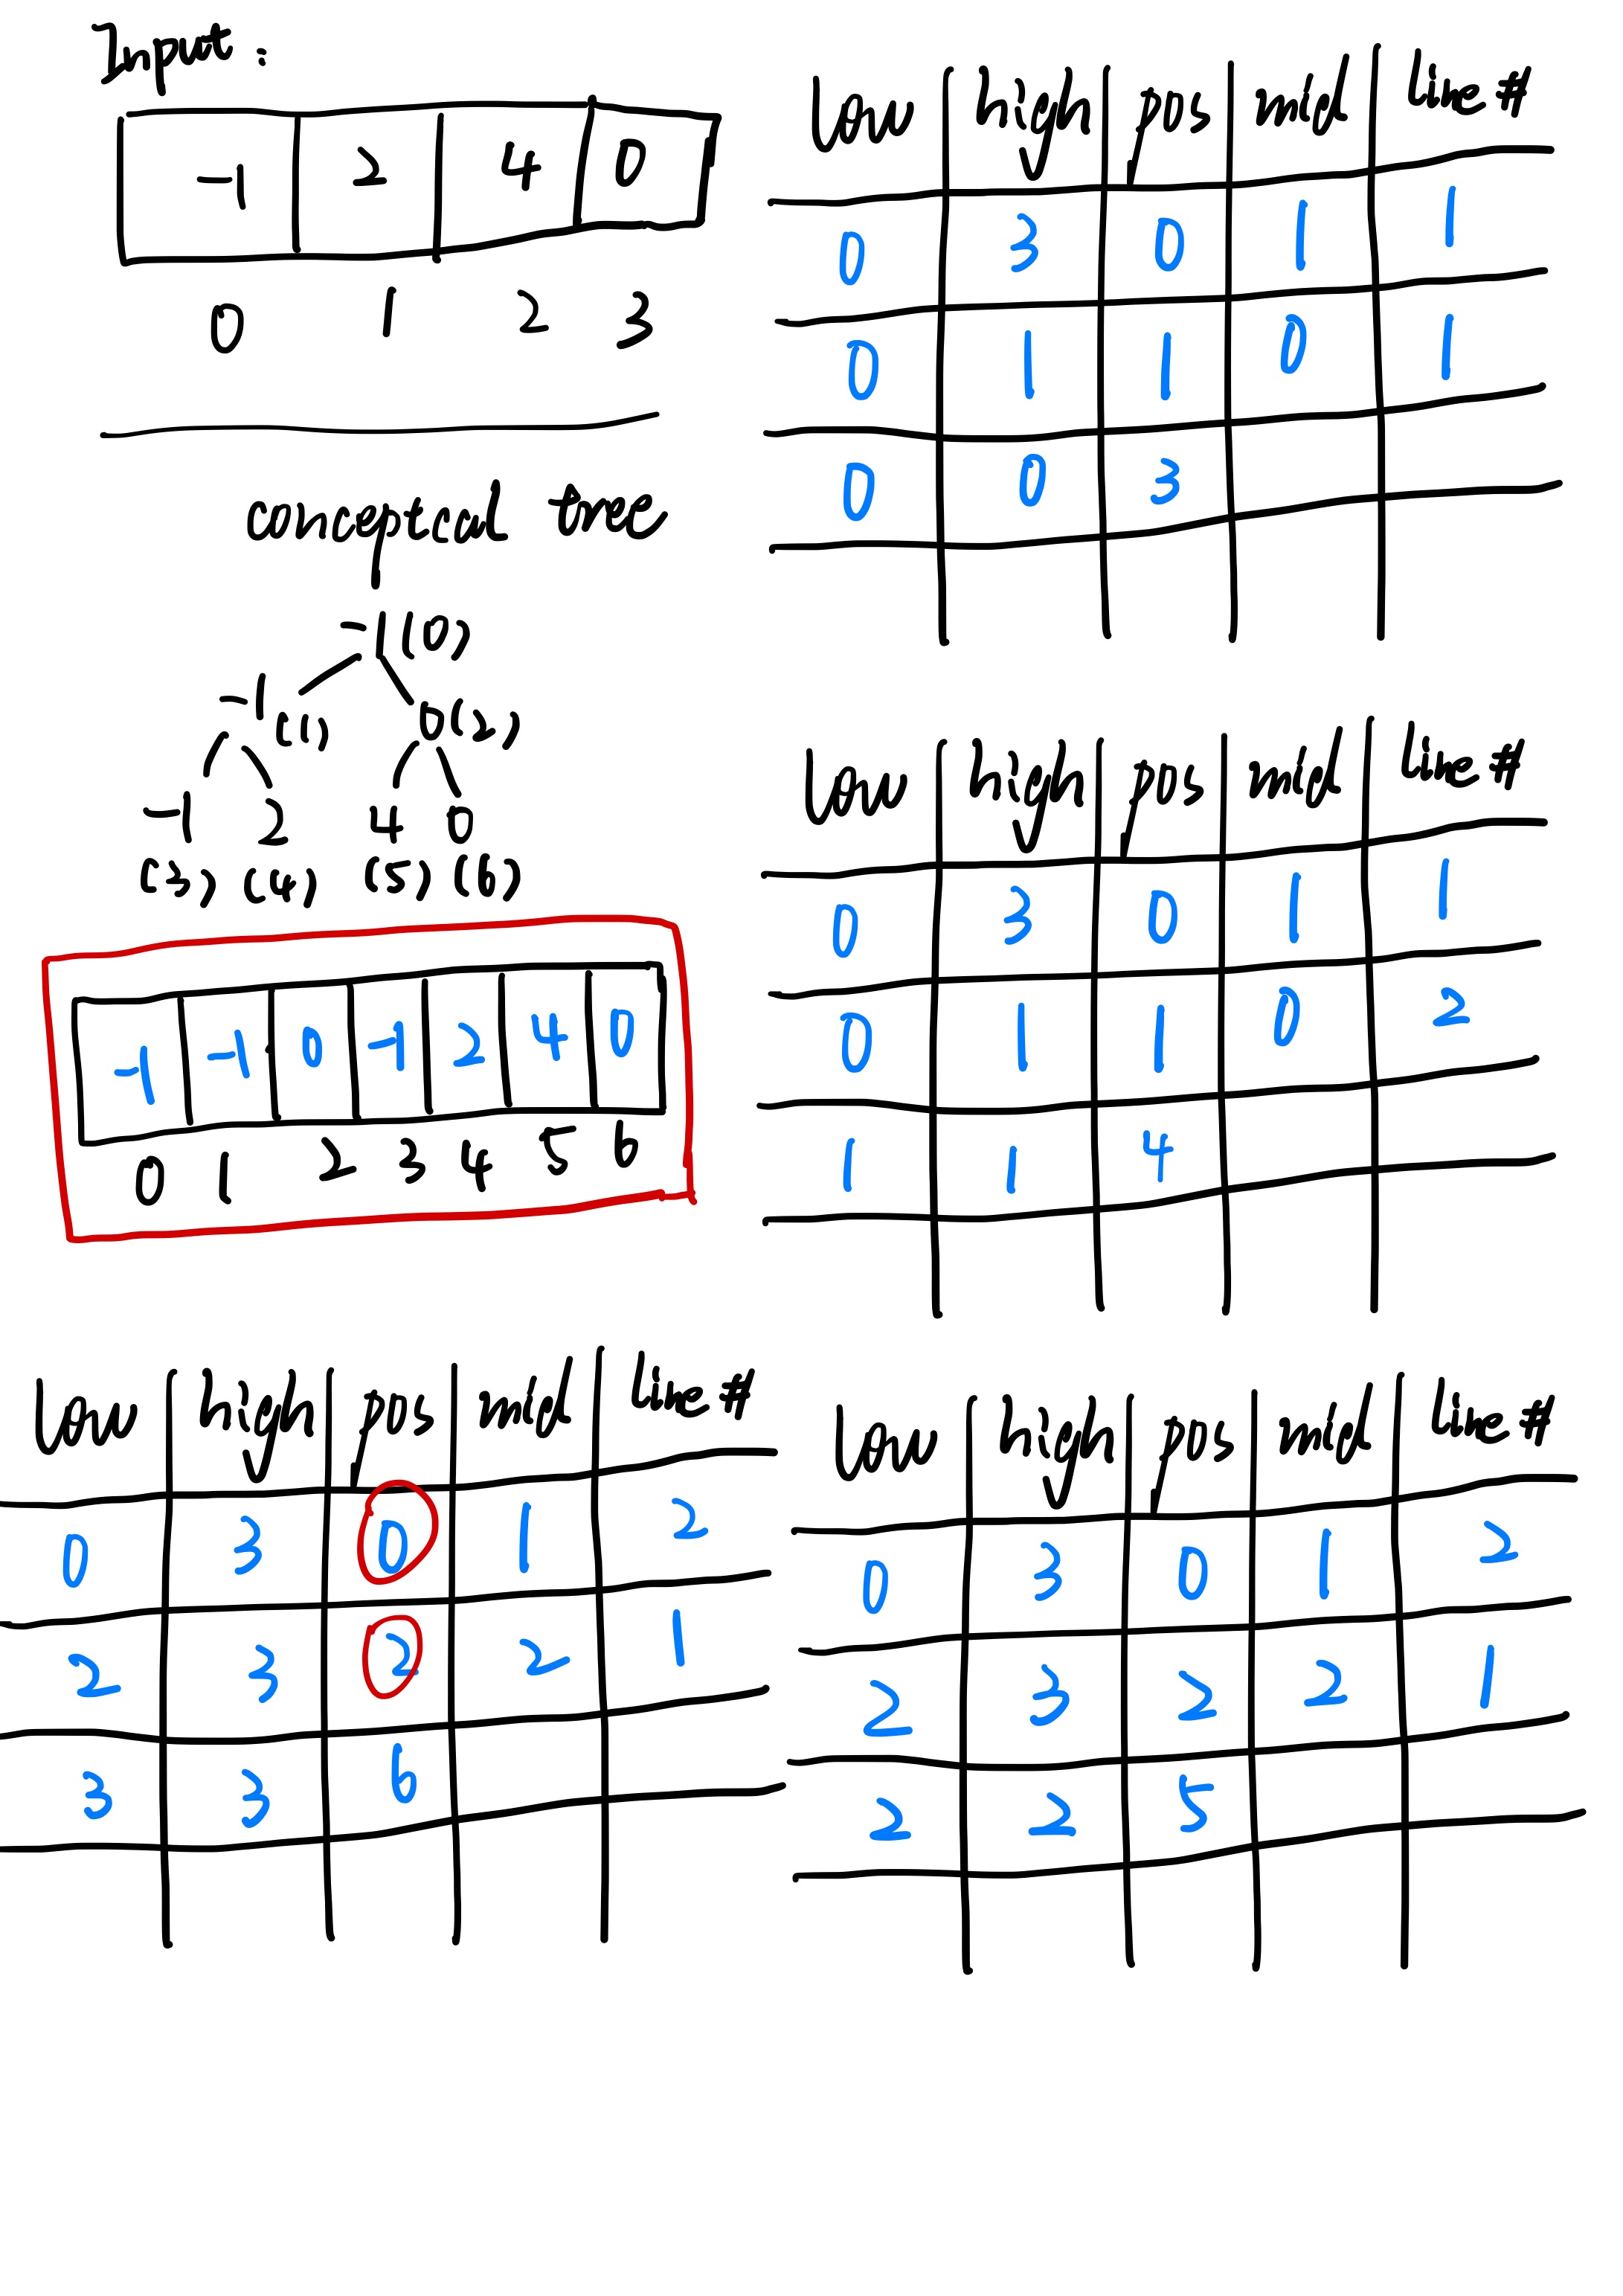 Input:
-1 2 4 0
0 1 2 3
conceptcal tree
-1(0)
-1(1) 0(2)
-1 2 4 0
(3) (4) (5) (6)
-1 -1 0 -1 2 4 0
0 1 2 3 4 5 6
low high pos mid line #
0 3 0 1 1
0 1 1 0 1
0 0 3
low high pos mid line #
0 3 0 1 1
0 1 1 0 2
1 1 4
low high pos mid line #
0 3 0 1 2
2 3 2 2 1
3 3 6
low high pos mid line #
0 3 0 1 2
2 3 2 2 1
2 2 5